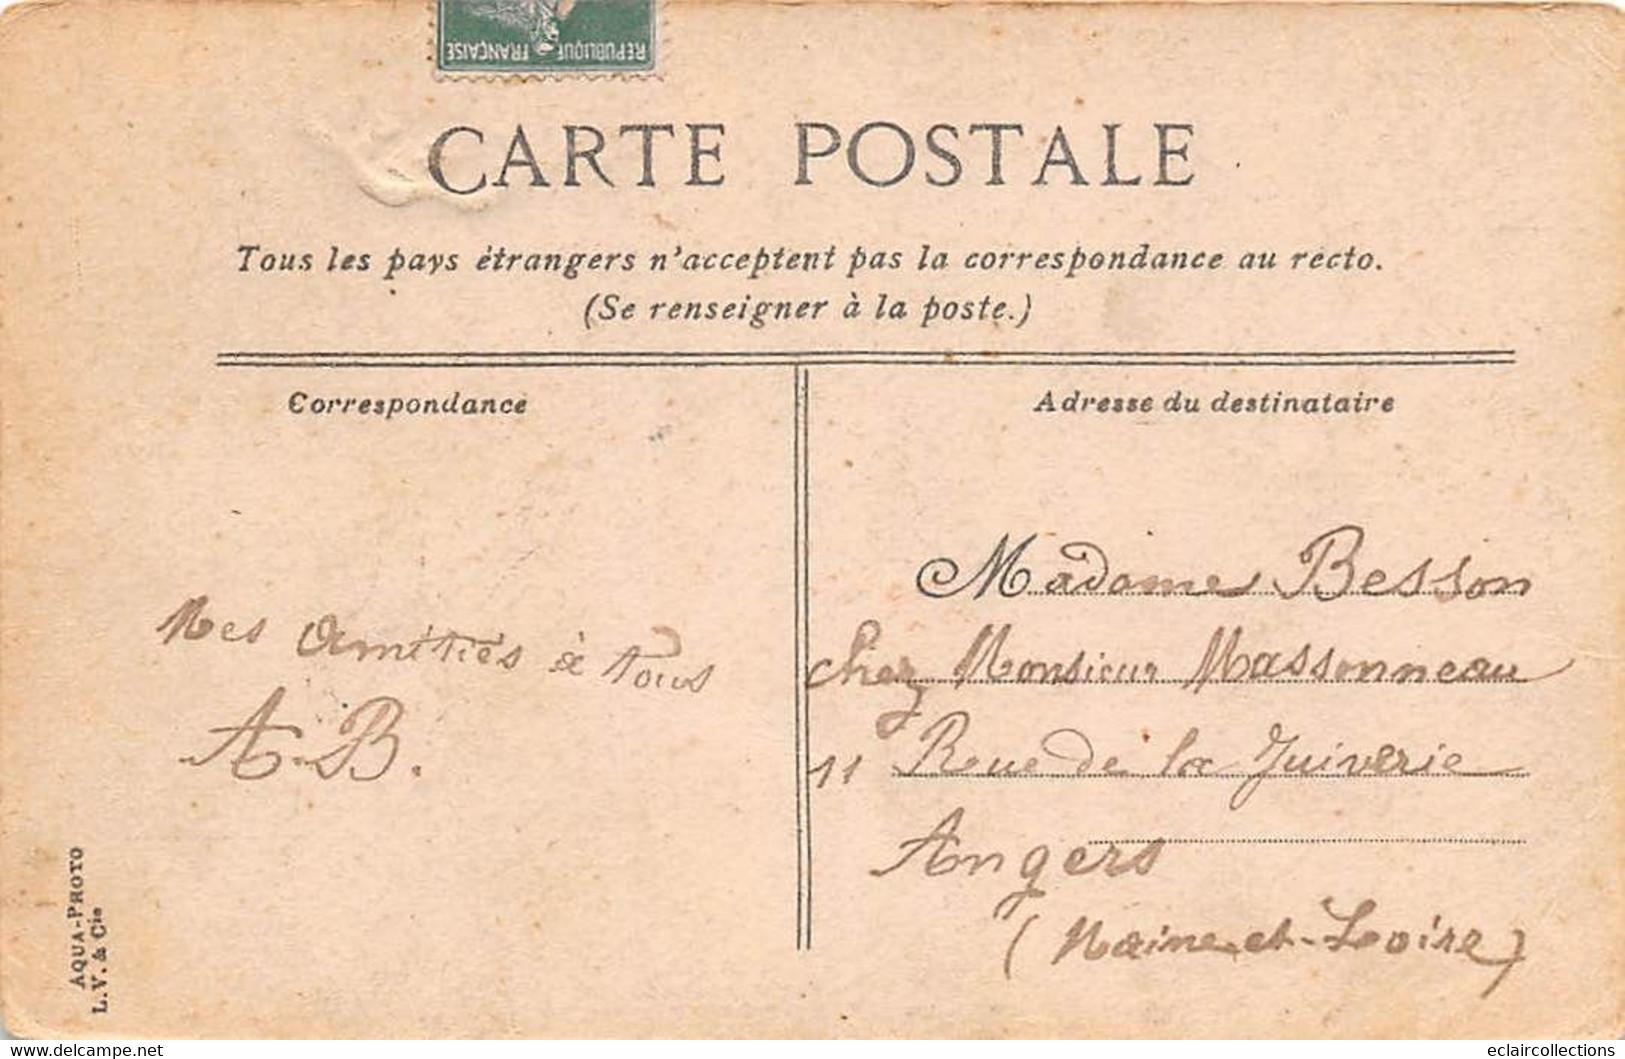 REPUBLIQUE FRANÇAISE
CARTE POSTALE
Tous les pays étrangers n'acceptent pas la correspondance au recto.
(Se renseigner à la poste.)
Correspondance
Mes amitiés à tous
A. B.
Adresse du destinataire
Madame Besson
chez Monsieur Massonneau
11 Rue de la Juiverie
Angers
(Maine-et-Loire)
AQUA-PHOTO
L. V. & Cie
Tous droits réservés delcampe.net
eclaircollections